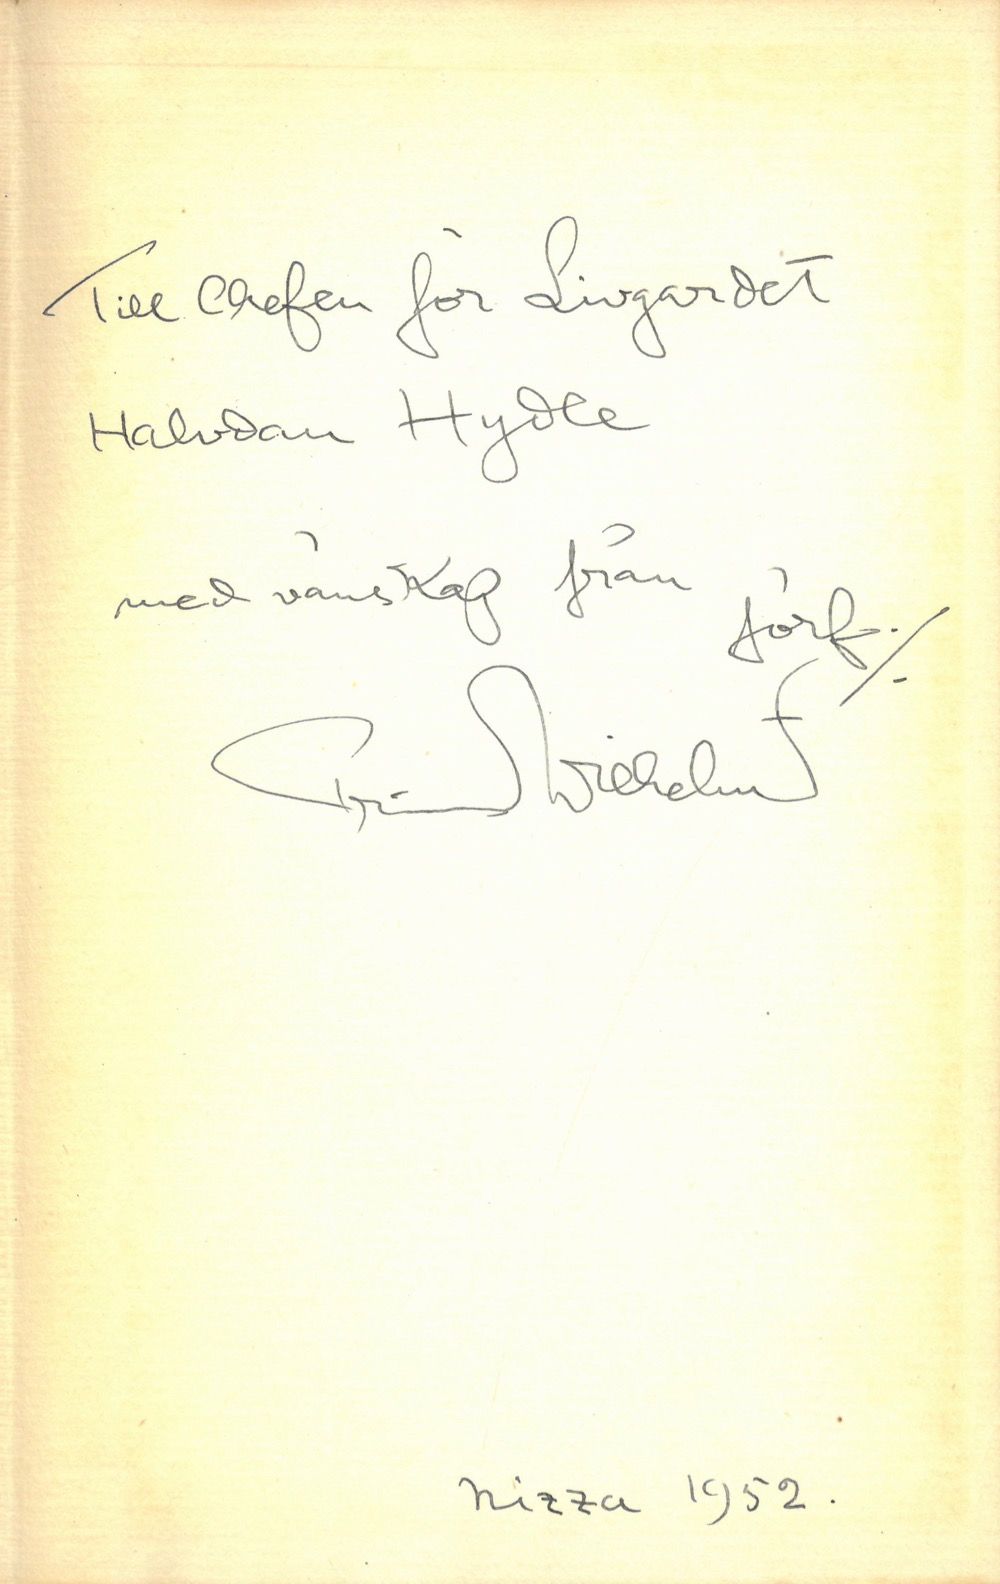 Till Chefen för Livgardet
Halvdan Hydle
med vänskap från förf./.
Prins Wilhelm
Nizza 1952.